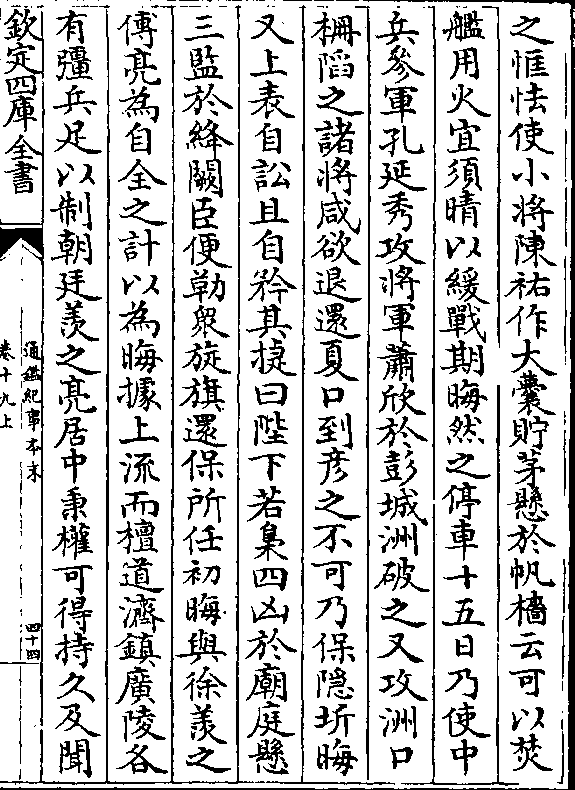 之恇怯使小將陳祐作大囊貯茅懸於帆檣云可以焚
艦用火宜須晴以緩戰期晦然之停車十五日乃使中
兵參軍孔延秀攻將軍蕭欣於彭城洲破之又攻洲口
柵䧟之諸將咸欲退還夏口到彦之不可乃保隠圻晦
又上表自訟且自矜其捷曰陛下若梟四凶於廟庭懸
三監於絳闕臣便勒衆旋旗還保所任初晦與徐羨之
傅亮為自全之計以為晦據上流而檀道濟鎮廣陵各
有彊兵足以制朝廷羨之亮居中秉權可得持久及聞
欽定四庫全書
通鑑紀事本末
卷十九上
四十四